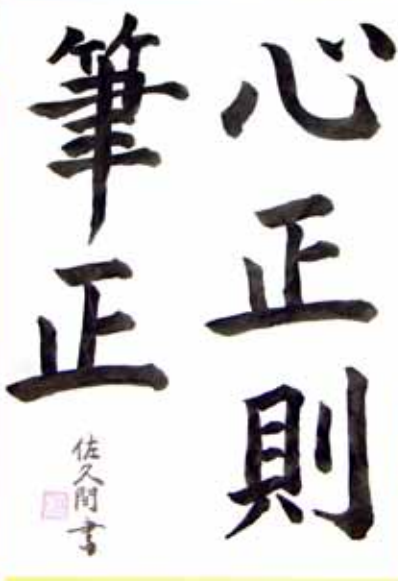 心正則
筆正
佐久間書